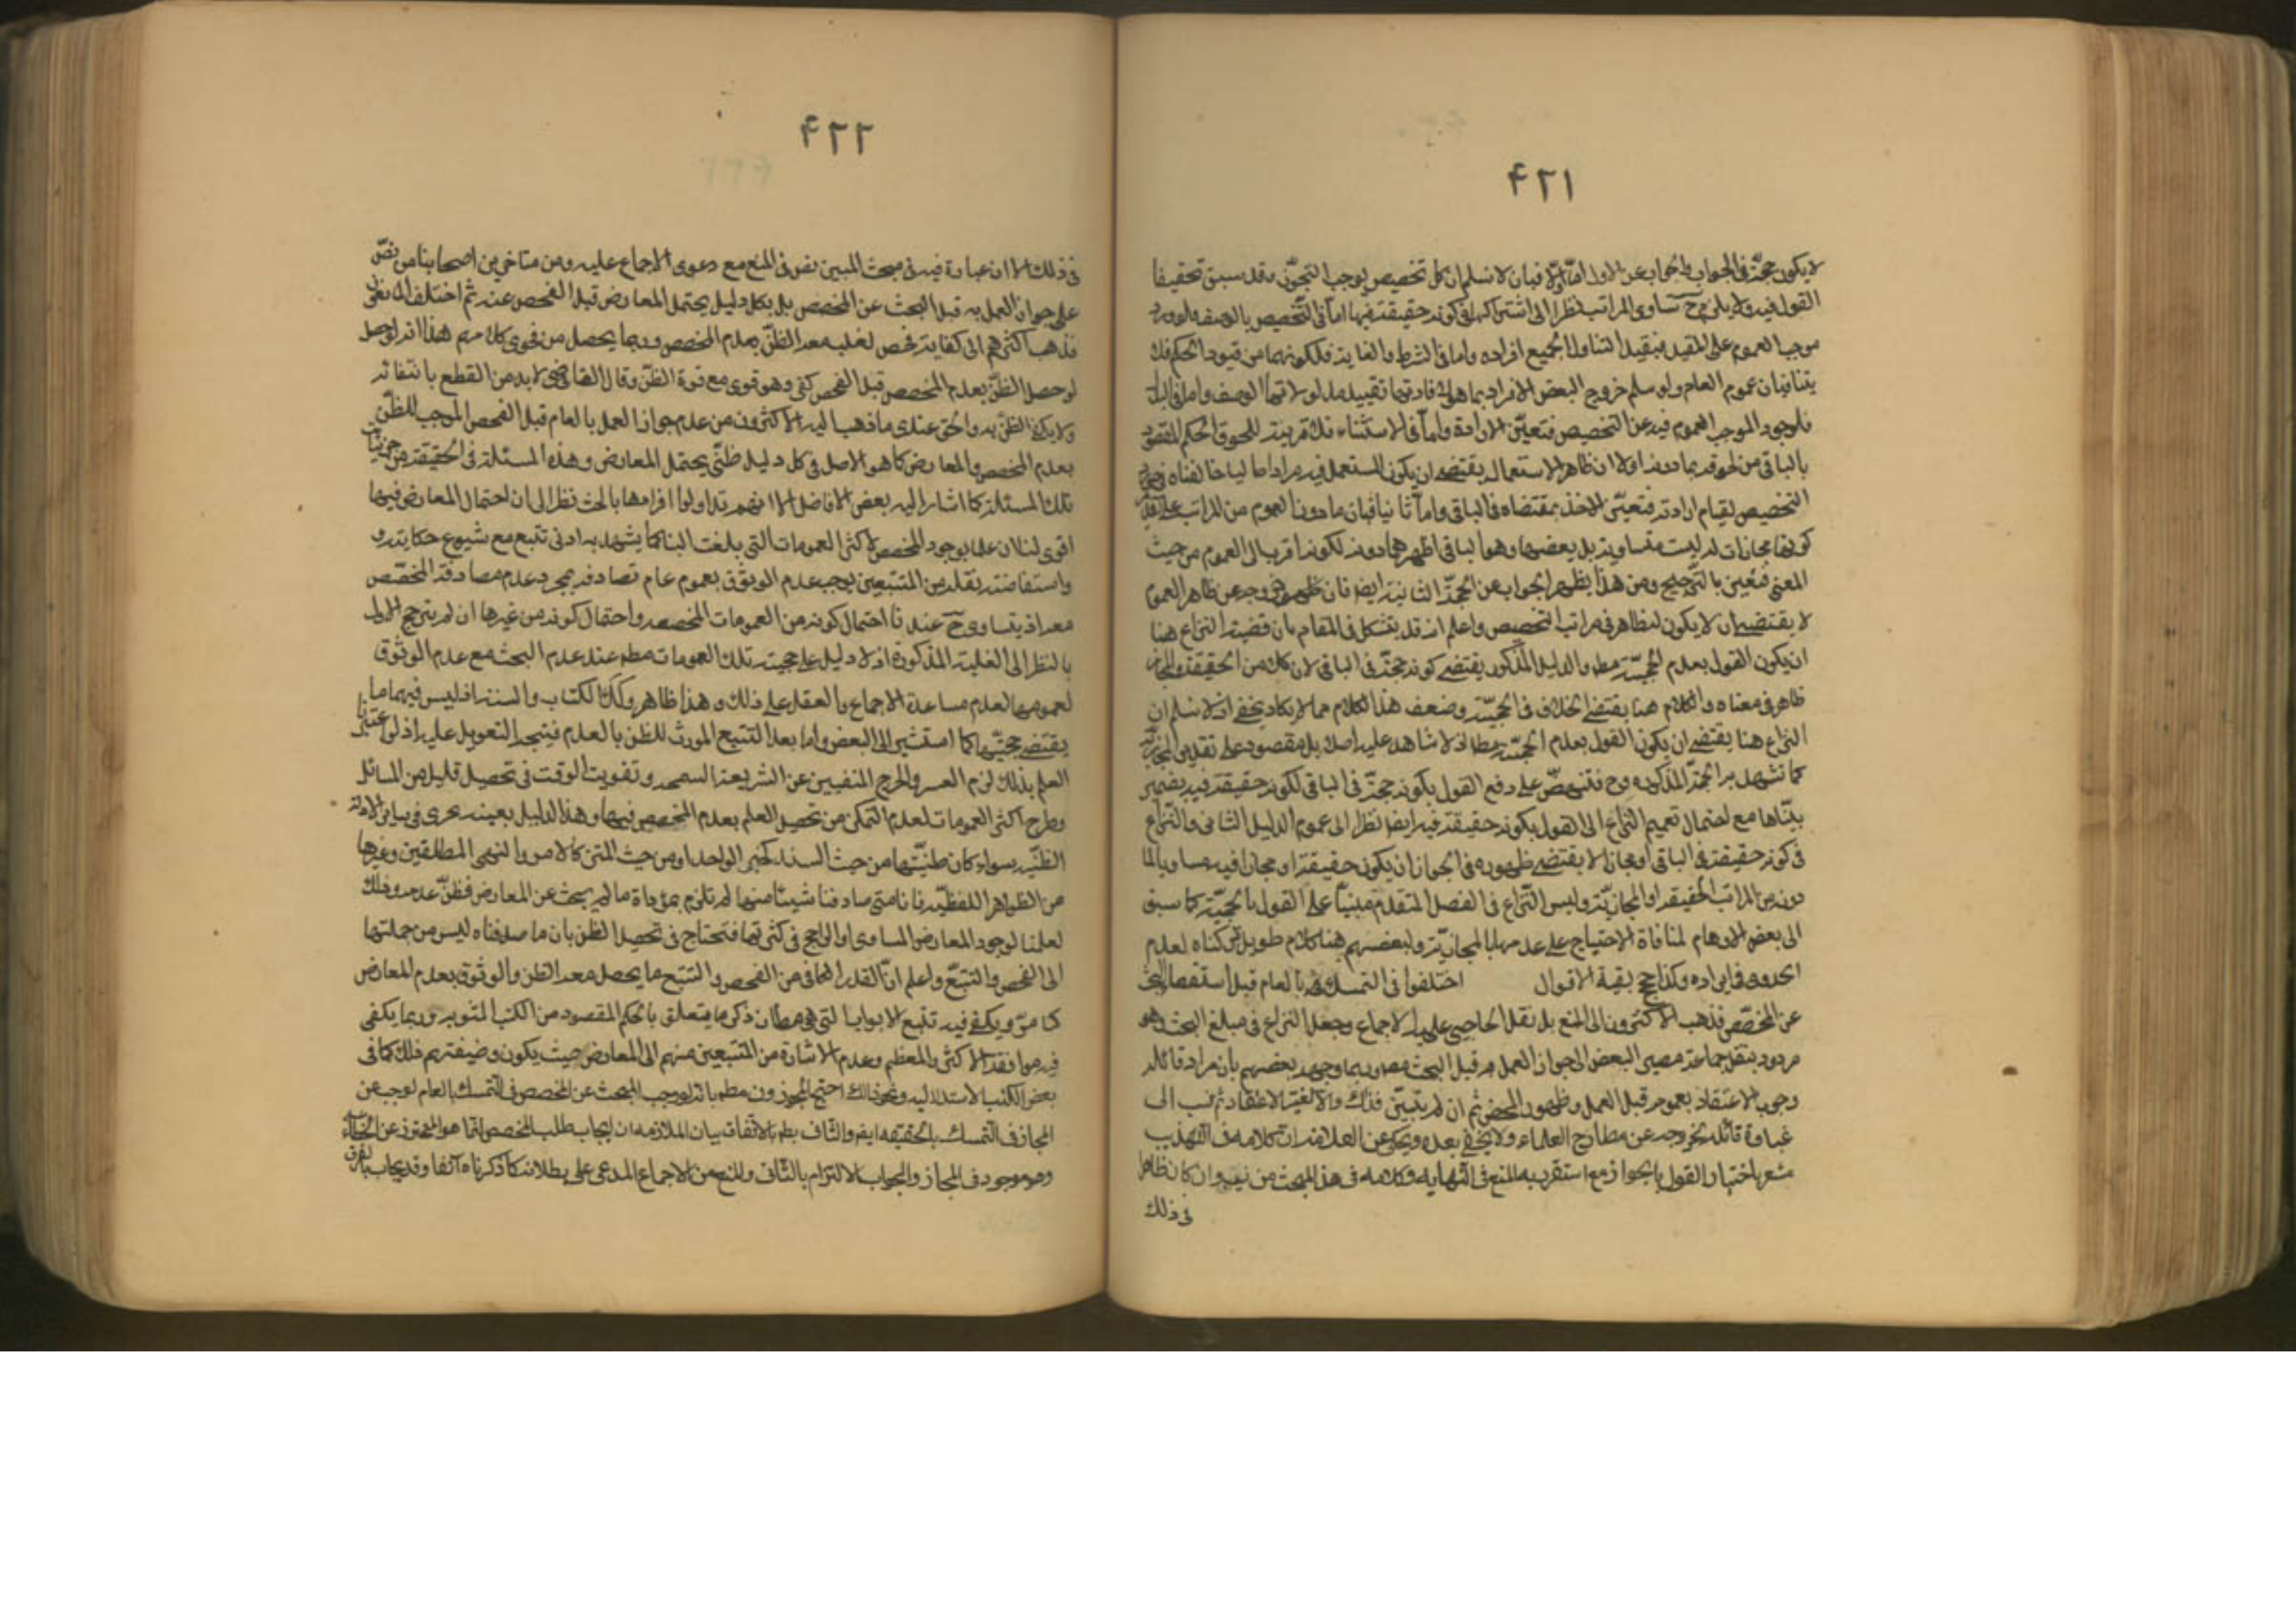 ۴۲۱
لا يكون حجة في الجواب والجواب عن الاول اما اولا فبان لا نسلم ان كل تخصيص يوجب التجوز وقد سبق تحقيق
القول فيه ولا يلزم ح تساوى المراتب نظرا الى اشتراكها في كونه حقيقة فيها اما في التخصيص بالوصف فلورود
موجب العموم على المقيد فيقيد التناول لجميع افراده واما في الشرط والغاية فلكونهما من قيود الحكم فلا
ينافيان عموم العام ولو سلم خروج البعض الافراد بما هو لافادتهما تقييد مدلولاتهما الوصف واما في البدل
فلوجود الموجب العموم فيه عن التخصيص فتعين الارادة واما في الاستثناء فلان قرينة للحوق الحكم المقصود
بالباقى من لحوقه بما دونه اولا ان ظاهر الاستعمال يقتضى ان يكون المستعمل فيه مرادا ما ليا خالفناه في
التخصيص لقيام ارادته فتعين الاخذ بمقتضاه في الباقى واما ثانيا فبان ما دون العموم من المراتب على
كونها مجازات له ليست متساوية بل بعضها وهو الباقى اظهر مما دونه لكونه اقرب الى العموم من حيث
المعنى فتعين بالترجيح ومن هذا يظهر الجواب عن الحجة الثانية ايضا فان ظهور خروجه عن ظاهر العموم
لا يقتضى ان لا يكون له ظاهر في مراتب التخصيص واعلم انه قد يتشكل في المقام بان قضية النزاع هنا
ان يكون القول بعدم الحجية مط والدليل المذكور يقتضى كونه حجة في الباقى لان كلا من الحقيقة والمجاز
ظاهر في معناه والكلام هنا يقتضى الخلاف في الحجية وضعف هذا الكلام مما لا يكاد يخفى اذ لا نسلم ان
النزاع هنا يقتضى ان يكون القول بعدم الحجية مط اذ لا شاهد عليه اصلا بل مقصود على تقدير المجازية
كما تشهد به الحجة المذكورة وح فتنهض على دفع القول بكونه حجة في الباقى لكونه حقيقة فيه بضميمة
بيناها مع احتمال تعميم النزاع الى القول بكونه حقيقة فيه ايضا نظرا الى عموم الدليل الثانى والنزاع
في كونه حقيقة في الباقى او مجازا لا يقتضى ظهوره في الجواز ان يكون حقيقة او مجازا فيه مساويا لما
دونه من المراتب الحقيقة او المجازية وليس النزاع في الفصل المتقدم مبنيا على القول بالحجية كما سبق
الى بعض الاوهام لمنافاة الاحتياج على عدمها بالمجازية ولبعضهم هنا كلام طويل تركناه لعدم
الجدوى في ايراده وكذا حجج بقية الاقوال اختلفوا في التمسك بالعام قبل استقصاء البحث
عن المخصص فذهب الاكثرون الى المنع بل نقل الحاجبى عليه الاجماع وجعل النزاع في مبلغ البحث وهو
مردود بنقل جماعة مصير البعض الى جواز العمل به قبل البحث مط وربما وجهه بعضهم بان مراد قائله
وجوب الاعتقاد بعمومه قبل العمل وظهور المخصص ثم ان لم يتبين فذاك والا تغير الاعتقاد ثم نسب الى
غباوة قائله بخروجه عن مطارح العلماء ولا يخفى بعده ويحكى عن العلامة ان كلامه في التهذيب
مشعر باختيار القول بالجواز مع استقربه المنع في النهايه وكلامه في هذا المبحث من نيه وان كان ظاهرا
في ذلك
۴۲۲
في ذلك الا ان عبارة فيه في مبحث المبين نص في المنع مع دعوى الاجماع عليه ومن متاخرين اصحابنا من نص
على جواز العمل به قبل البحث عن المخصص بل بكل دليل يحتمل المعارض قبل الفحص عنه ثم اختلف المانعون
فذهب اكثرهم الى كفاية فحص لغلبه معه الظن بعدم المخصص وربما يحصل من فحوى كلامهم هذا انه لو حصل
لو حصل الظن بعدم المخصص قبل الفحص كفى وهو قوى مع قوة الظن وقال القاضى لابد من القطع بانتفائه
ولا يكفى الظن به والحق عندى ما ذهب اليه الاكثرون من عدم جواز العمل بالعام قبل الفحص الموجب للظن
بعدم المخصص والمعارض كما هو الاصل في كل دليل ظنى يحتمل المعارض وهذه المسئلة في الحقيقة من جزئيات
تلك المسئلة كما اشار اليه بعض الافاضل الا انهم تداولوا افرادها بالبحث نظرا الى ان احتمال المعارض فيها
اقوى لنا ان علمنا بوجود المخصص لاكثر العمومات التى بلغت الينا كما يشهد به ادنى تتبع مع شيوع حكايته و
واستفاضة نقله من المتتبعين يوجب عدم الوثوق بعموم عام نصادفه بمجرد عدم مصادفة المخصص
معه اذ يتساوى ح عندنا احتمال كونه من العمومات المخصصه واحتمال كونه من غيرها ان لم يترجح الاول
بالنظر الى الغلبة المذكورة اذ لا دليل على حجية تلك العمومات مط عند عدم البحث مع عدم الوثوق
لعمومها لعدم مساعدة الاجماع والعقل على ذلك وهذا ظاهر وكذا الكتاب والسنة اذ ليس فيهما ما
يقتضى حجيتها كما استشير الى البعض واما بعد التتبع المورث للظن بالعدم فيتجه التعويل عليه اذ لو اعتبرنا
العلم بذلك لزم العسر والحرج المنفيين عن الشريعة السمحه وتفويت الوقت في تحصيل قليل من المسائل
وطرح اكثر العمومات لعدم التمكن من تحصيل العلم بعدم المخصص فيها وهذا الدليل بعينه يجرى في باقى الادلة
الظنية سواء كان ظنيتها من حيث السند كخبر الواحد او من حيث المتن كالامر والنهى المطلقين وغيرها
من الظواهر اللفظية فانا متى صادفنا شيئا منها لم نلزم بمؤداة ما لم يبحث عن المعارض فظن عدمه وذلك
لعلمنا لوجود المعارض المساوى او الراجح في كثرتها فنحتاج في تحصيل الظن بان ما صدفناه ليس من جملتها
الى الفحص والتتبع واعلم ان القدر الكافى من الفحص والتتبع ما يحصل معه الظن والوثوق بعدم المعارض
كما مر ويكفى فيه تتبع الابواب التى هى مظان ذكر ما يتعلق بالحكم المقصود من الكتب المبوبه وربما يكفى
فيه موافقة الاكثر والمعظم وعدم الاشارة من المتتبعين منهم الى المعارض حيث يكون وضيفتهم ذلك كما في
بعض الكتب الاستدلاليه ونحو ذلك احتج المجوزون مط بانه لو وجب البحث عن المخصص في التمسك بالعام لوجب عن
المجاز في التمسك بالحقيقه ايضا والثانى بط بالاتفاق بيان الملازمه ان ايجاب طلب المخصص انما هو للتحرز عن الخطاء
وهو موجود في المجاز والجواب الالتزام بالثانى والمنع من الاجماع المدعى على بطلانه كما ذكرناه آنفا وقد يجاب بالفرق